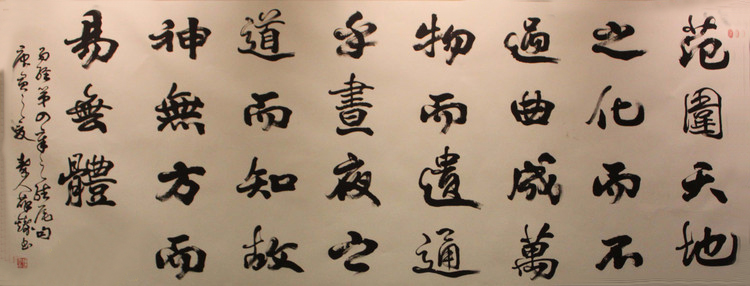 范圍天地
之化而不
過曲成萬
物而遺通
乎晝夜之
道而知故
神無方而
易無體
易經第四章之結尾句
庚寅之夏